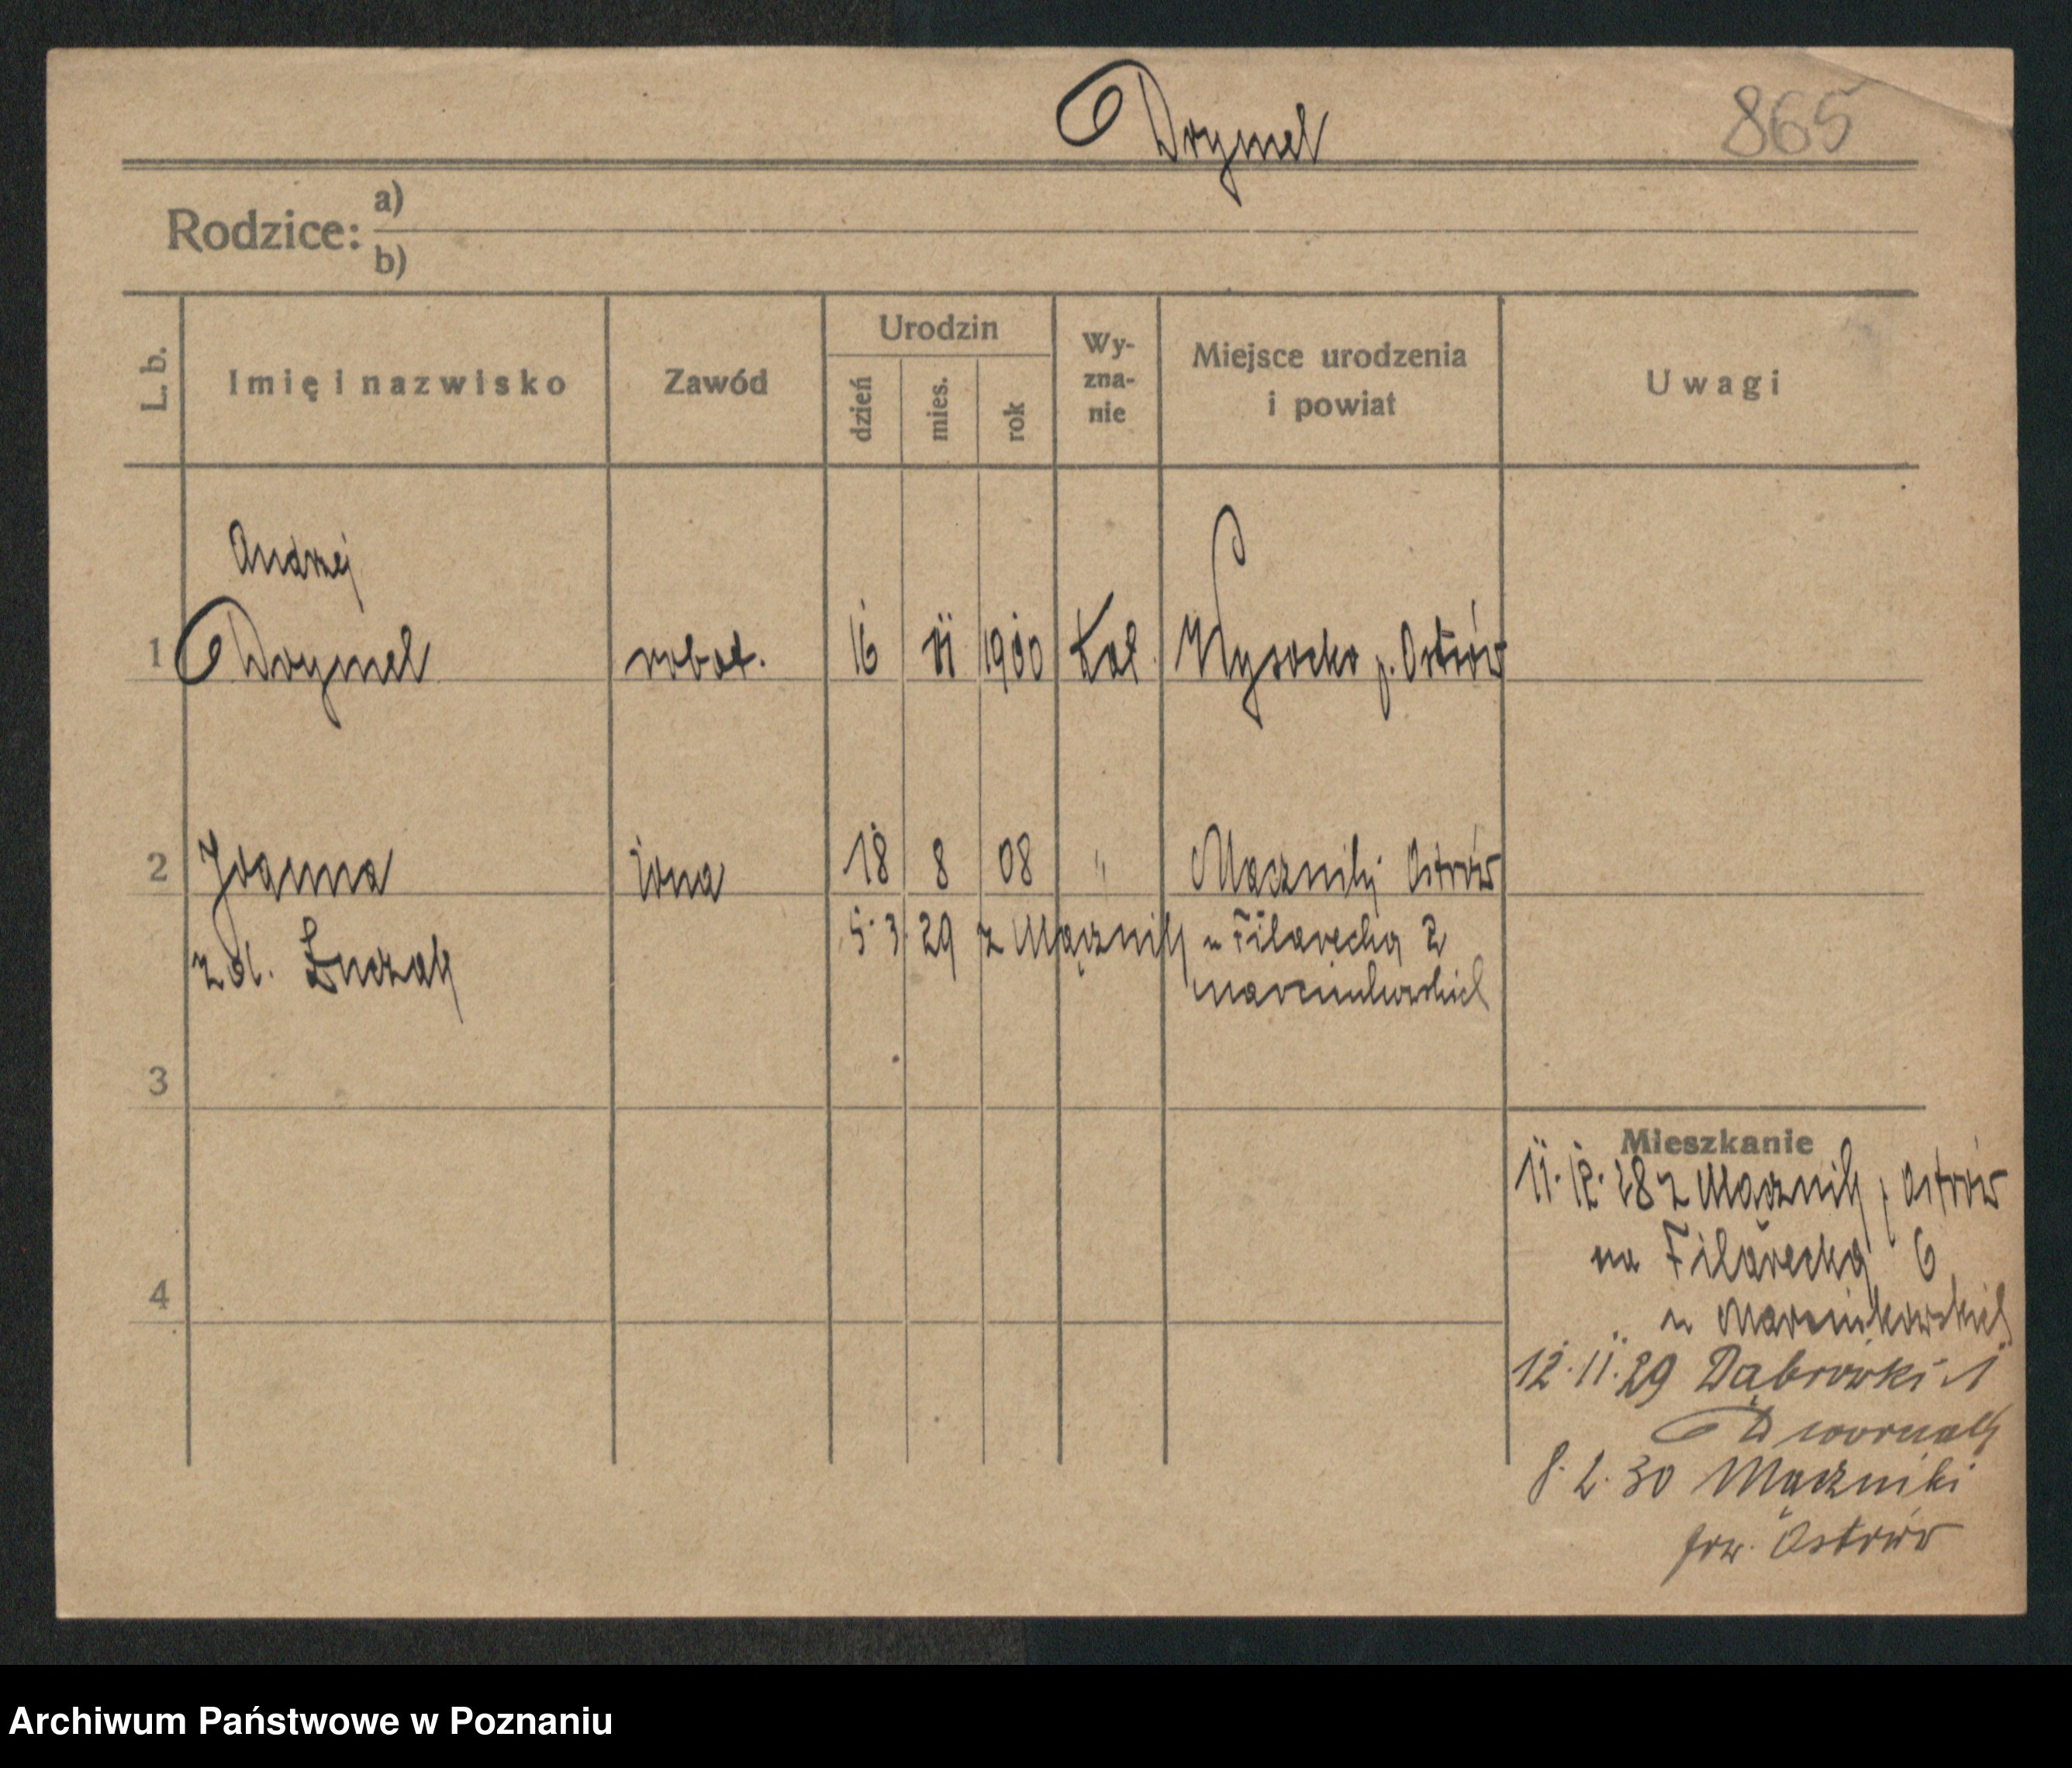 Drymel
865
Rodzice: a)
b)
L. b.
Imię i nazwisko
Zawód
Urodzin
dzień
mies.
rok
Wy-
zna-
nie
Miejsce urodzenia
i powiat
Uwagi
Andrzej
1 Drymel robot. 16 11 1900 kat. Wysocko p. Ostrów
2 Joanna żona 18 8 08 " Mączniki Ostrów
z d. Łuczak 5. 3. 29 z Mącznik u Filarecka 2
Marcinkowskich
3
Mieszkanie
11. 12. 28 z Mącznik p Ostrów
na Filarecka 6
u Marcinkowskich
4
12. 11. 29 Dąbrówki 1
8. 2. 30 Mączniki
pow. Ostrów
Archiwum Państwowe w Poznaniu